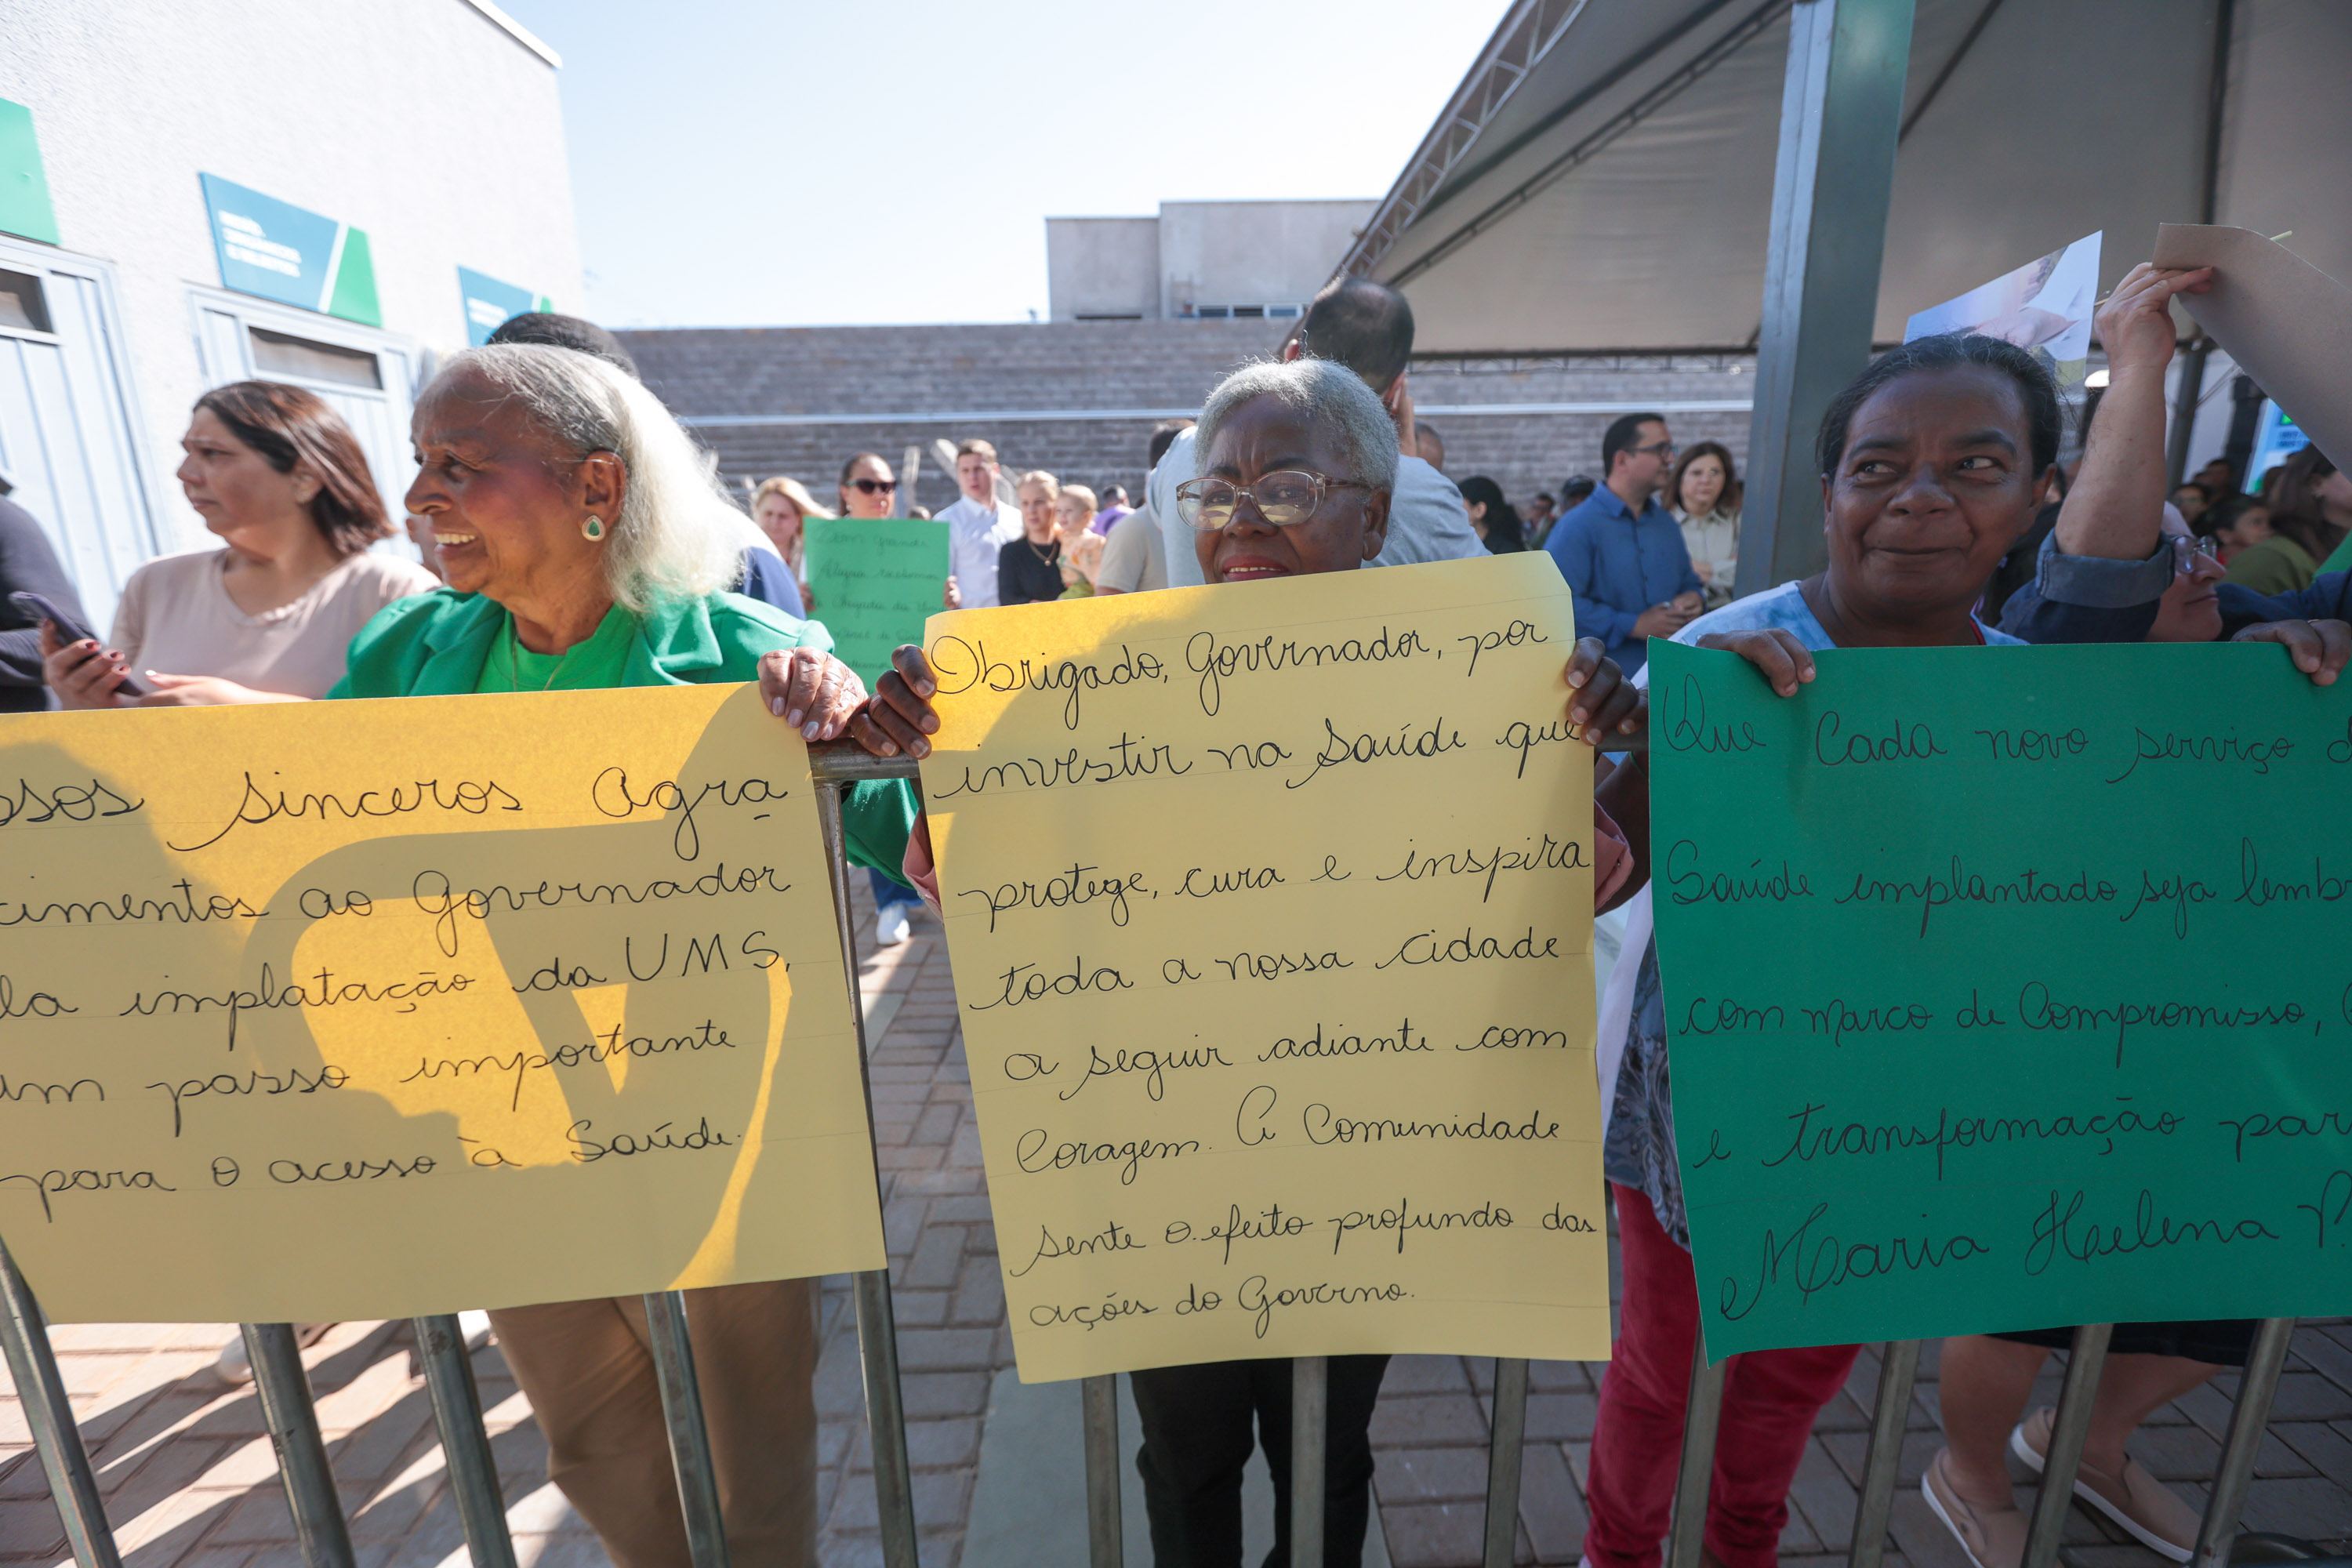 ossos sinceros agra
cimentos ao Governador
la implatação da UMS,
um passo importante
para o acesso à Saúde.
Obrigado, Governador, por
investir na Saúde que
protege, cura e inspira
toda a nossa cidade
a seguir adiante com
Coragem. A Comunidade
sente o efeito profundo das
ações do Governo.
Que Cada novo serviço d
Saúde implantado seja lemb
com marco de Compromisso,
e transformação par
Maria Helena P.